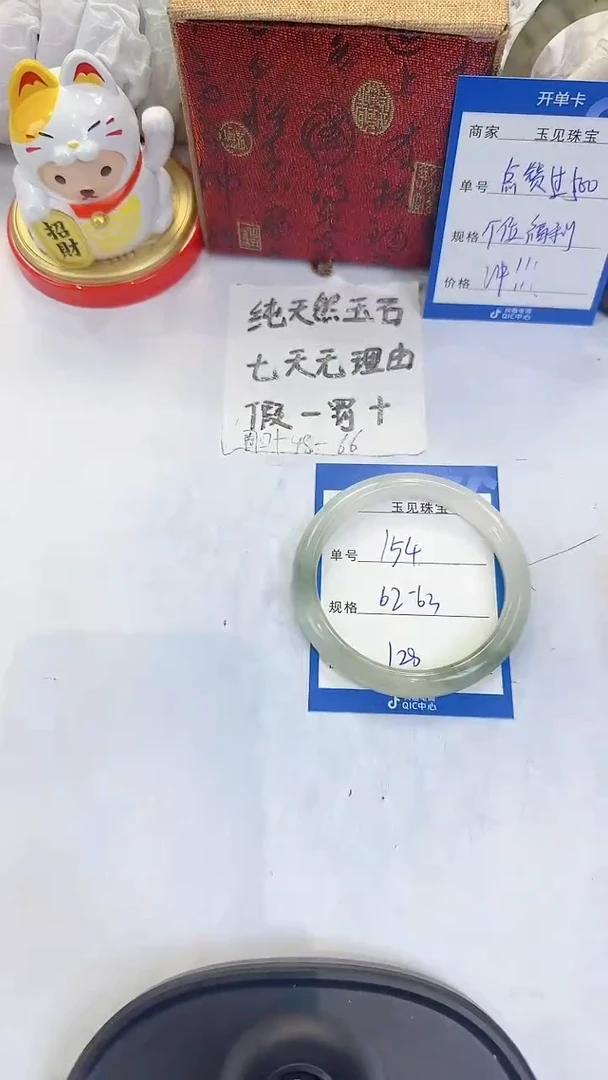 招財
开单卡
商家 玉见珠宝
单号 点赞过500
规格 个位福利
价格 冲!!!
抖音电商
QIC中心
纯天然玉石
七天无理由
假一罚十
圈口 48-66
玉见珠宝
单号 154
规格 62-63
128
抖音电商
QIC中心